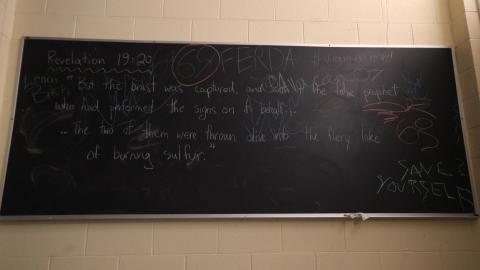 Revelation 19:20
69 FERDA
Learn " But the beast was captured, and with it the false prophet
who had performed the signs on it behalf...
... The two of them were thrown alive into the fiery lake
of burning sulfur."
69
SAVE
YOURSELF